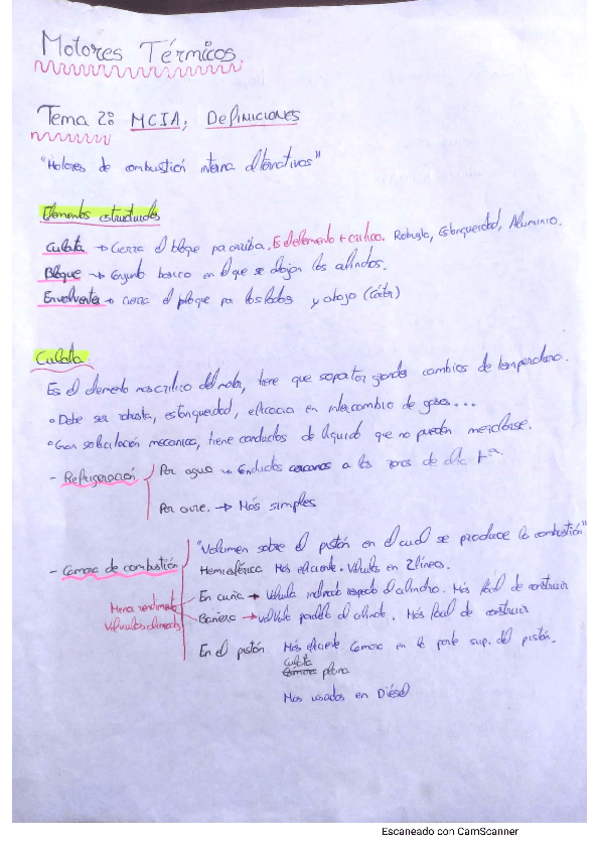 Motores Térmicos.
Tema 2: MCIA, Definiciones
"Motores de combustión interna alternativos"
Elementos estructurales
Culata → Cierra el bloque por arriba. Es el elemento + crítico. Robusto, Estanqueidad, Aluminio.
Bloque → Conjunto basico en el que se alojan los cilindros.
Envolvente → cierra el bloque por los lados y abajo (Cárter)
Culata
Es el elemento mas critico del motor, tiene que soportar grandes cambios de temperatura.
• Debe ser robusta, estanqueidad, eficacia en intercambio de gases...
• Gran solicitación mecanica, tiene conductos de líquido que no pueden mezclarse.
- Refrigeración
Por agua → Conductos cercanos a las zonas de alta tª
Por aire. → Más simples
- Camara de combustión
"Volumen sobre el pistón en el cual se produce la combustión"
Hemisférica Más eficiente. Válvulas en 2 líneas.
En cuña → Válvula inclinada respecto al cilindro. Más facil de construir
Menor rendimiento
Bañera → válvula paralela al cilindro. Más facil de construir
Válvulas alineadas
En el pistón. Más eficiente Camara en la parte sup. del pistón.
Culata
Camara plana
Mas usados en Diésel
Escaneado con CamScanner